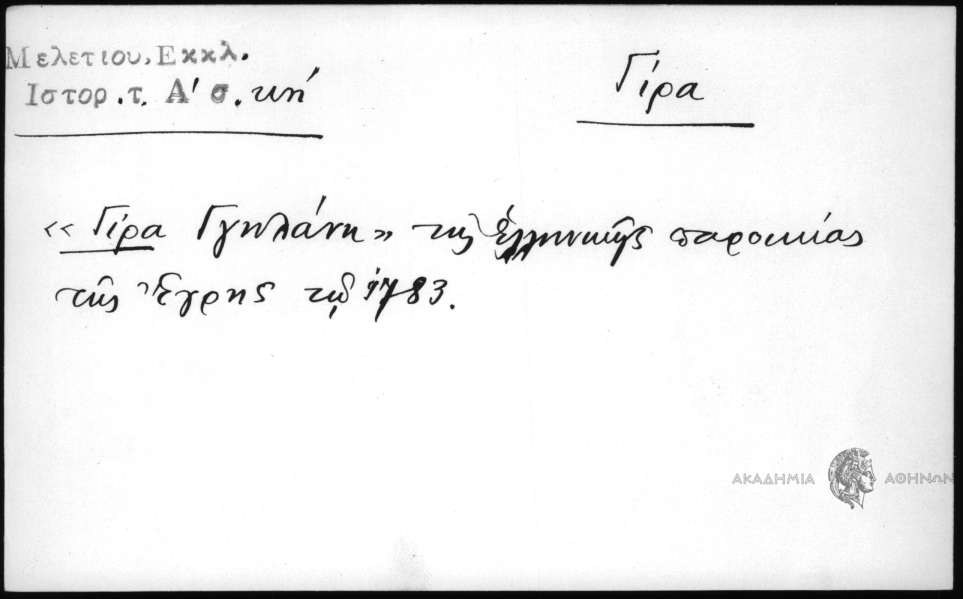 Μελετιου, Εκκλ.
Ιστορ. τ. Α' σ. κη'
Γίρα
«Γίρα Γγικλάνη» τῆς ἑλληνικῆς παροικίας
τῆς Ἔγρης τῷ 1783.
ΑΚΑΔΗΜΙΑ ΑΘΗΝΩΝ